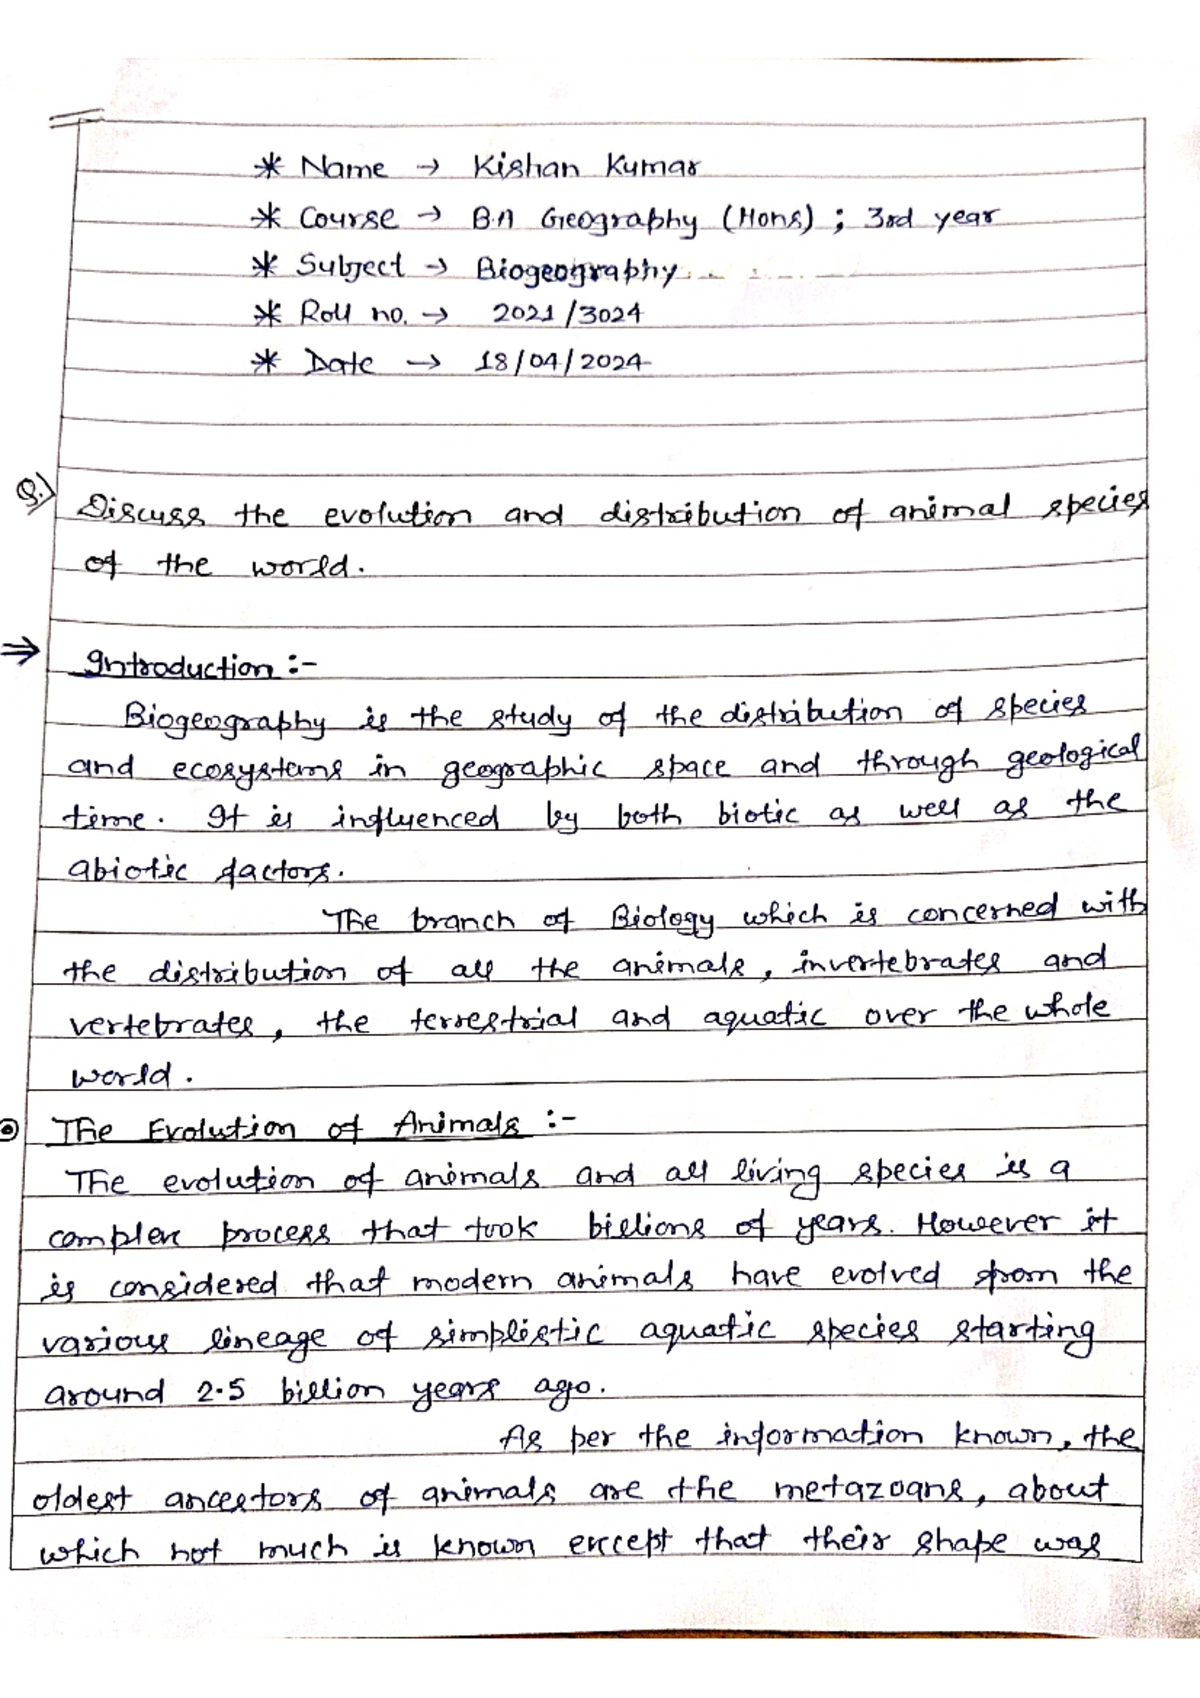 * Name → Kishan Kumar
* Course → B.A Geography (Hons) ; 3rd year
* Subject → Biogeography
* Roll no. → 2021/3024
* Date → 18/04/2024
Q.) Discuss the evolution and distribution of animal species
of the world.
⇒ Introduction :-
Biogeography is the study of the distribution of species
and ecosystems in geographic space and through geological
time. It is influenced by both biotic as well as the
abiotic factors.
The branch of Biology which is concerned with
the distribution of all the animals, invertebrates and
vertebrates, the terrestrial and aquatic over the whole
world.
The Evolution of Animals :-
The evolution of animals and all living species is a
complex process that took billions of years. However it
is considered that modern animals have evolved from the
various lineage of simplistic aquatic species starting
around 2.5 billion years ago.
As per the information known, the
oldest ancestors of animals are the metazoans, about
which not much is known except that their shape was